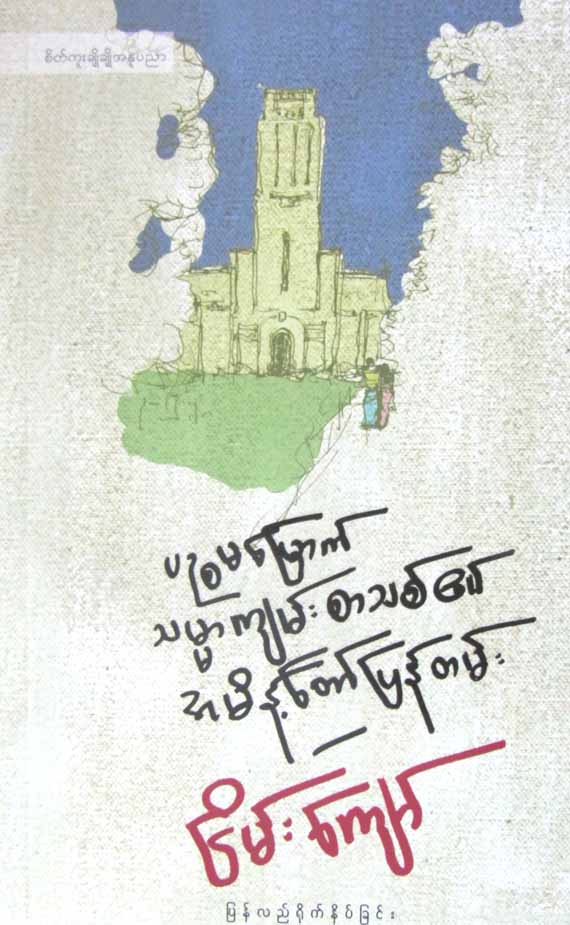 စိတ်ကူးချိုချိုအနုပညာ
ပဉ္စမမြောက်
သမ္မာကျမ်းစာသစ်၏
အမိန့်တော်ပြန်တမ်း
ငြိမ်းကျော်
ပြန်လည်ရိုက်နှိပ်ခြင်း